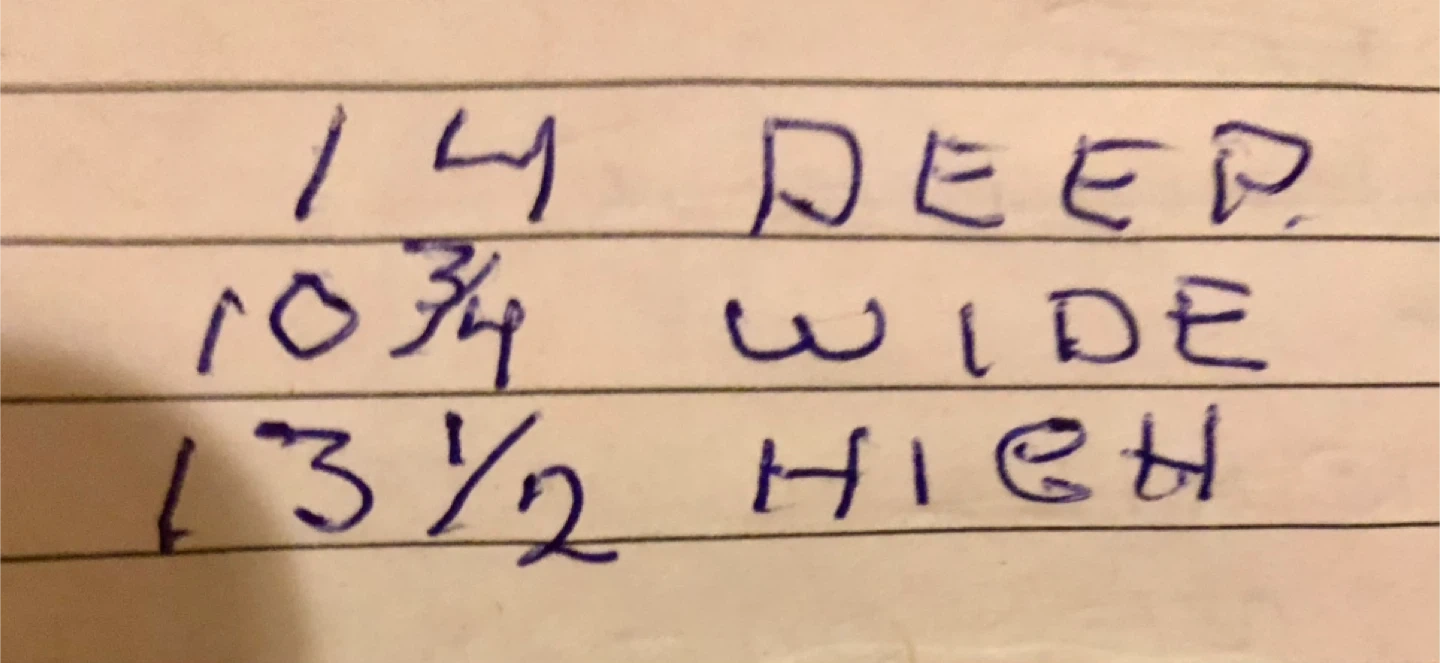 14 DEEP.
10 3/4 WIDE
13 1/2 HIGH